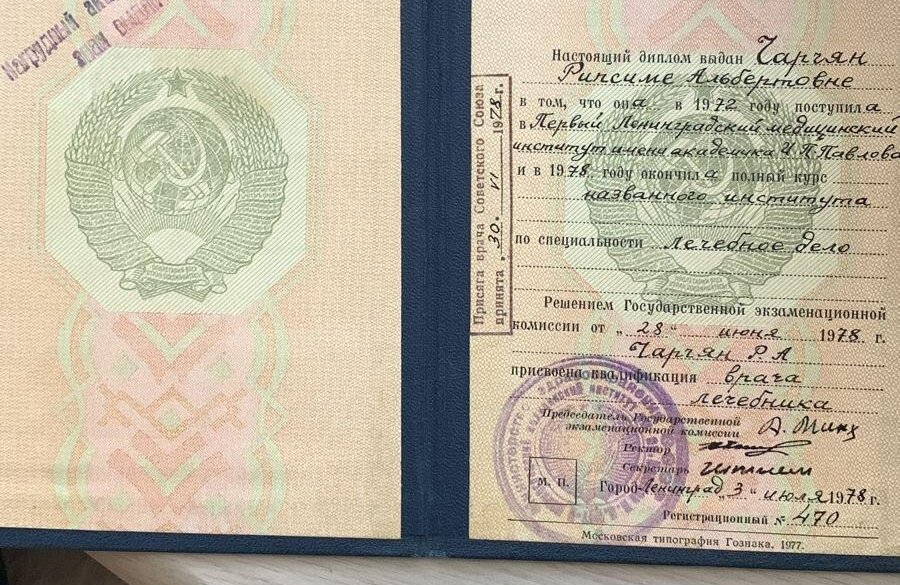 Нагрудный
знак выдан
Настоящий диплом выдан Чарчян
Рипсиме Альбертовне
в том, что она в 1972 году поступила
в Первый Ленинградский медицинский
институт имени академика И.П.Павлова
и в 1978 году окончила полный курс
названного института
по специальности лечебное дело
Решением Государственной экзаменационной
комиссии от „28“ июня 1978 г.
Чарчян Р.А
присвоена квалификация врача
лечебника
Председатель Государственной
экзаменационной комиссии
Ректор
Секретарь
М. П.
Город Ленинград „3“ июля 1978 г.
Регистрационный № 470
Московская типография Гознака. 1977.
Присяга врача Советского Союза
принята „30. VI 1978 г.